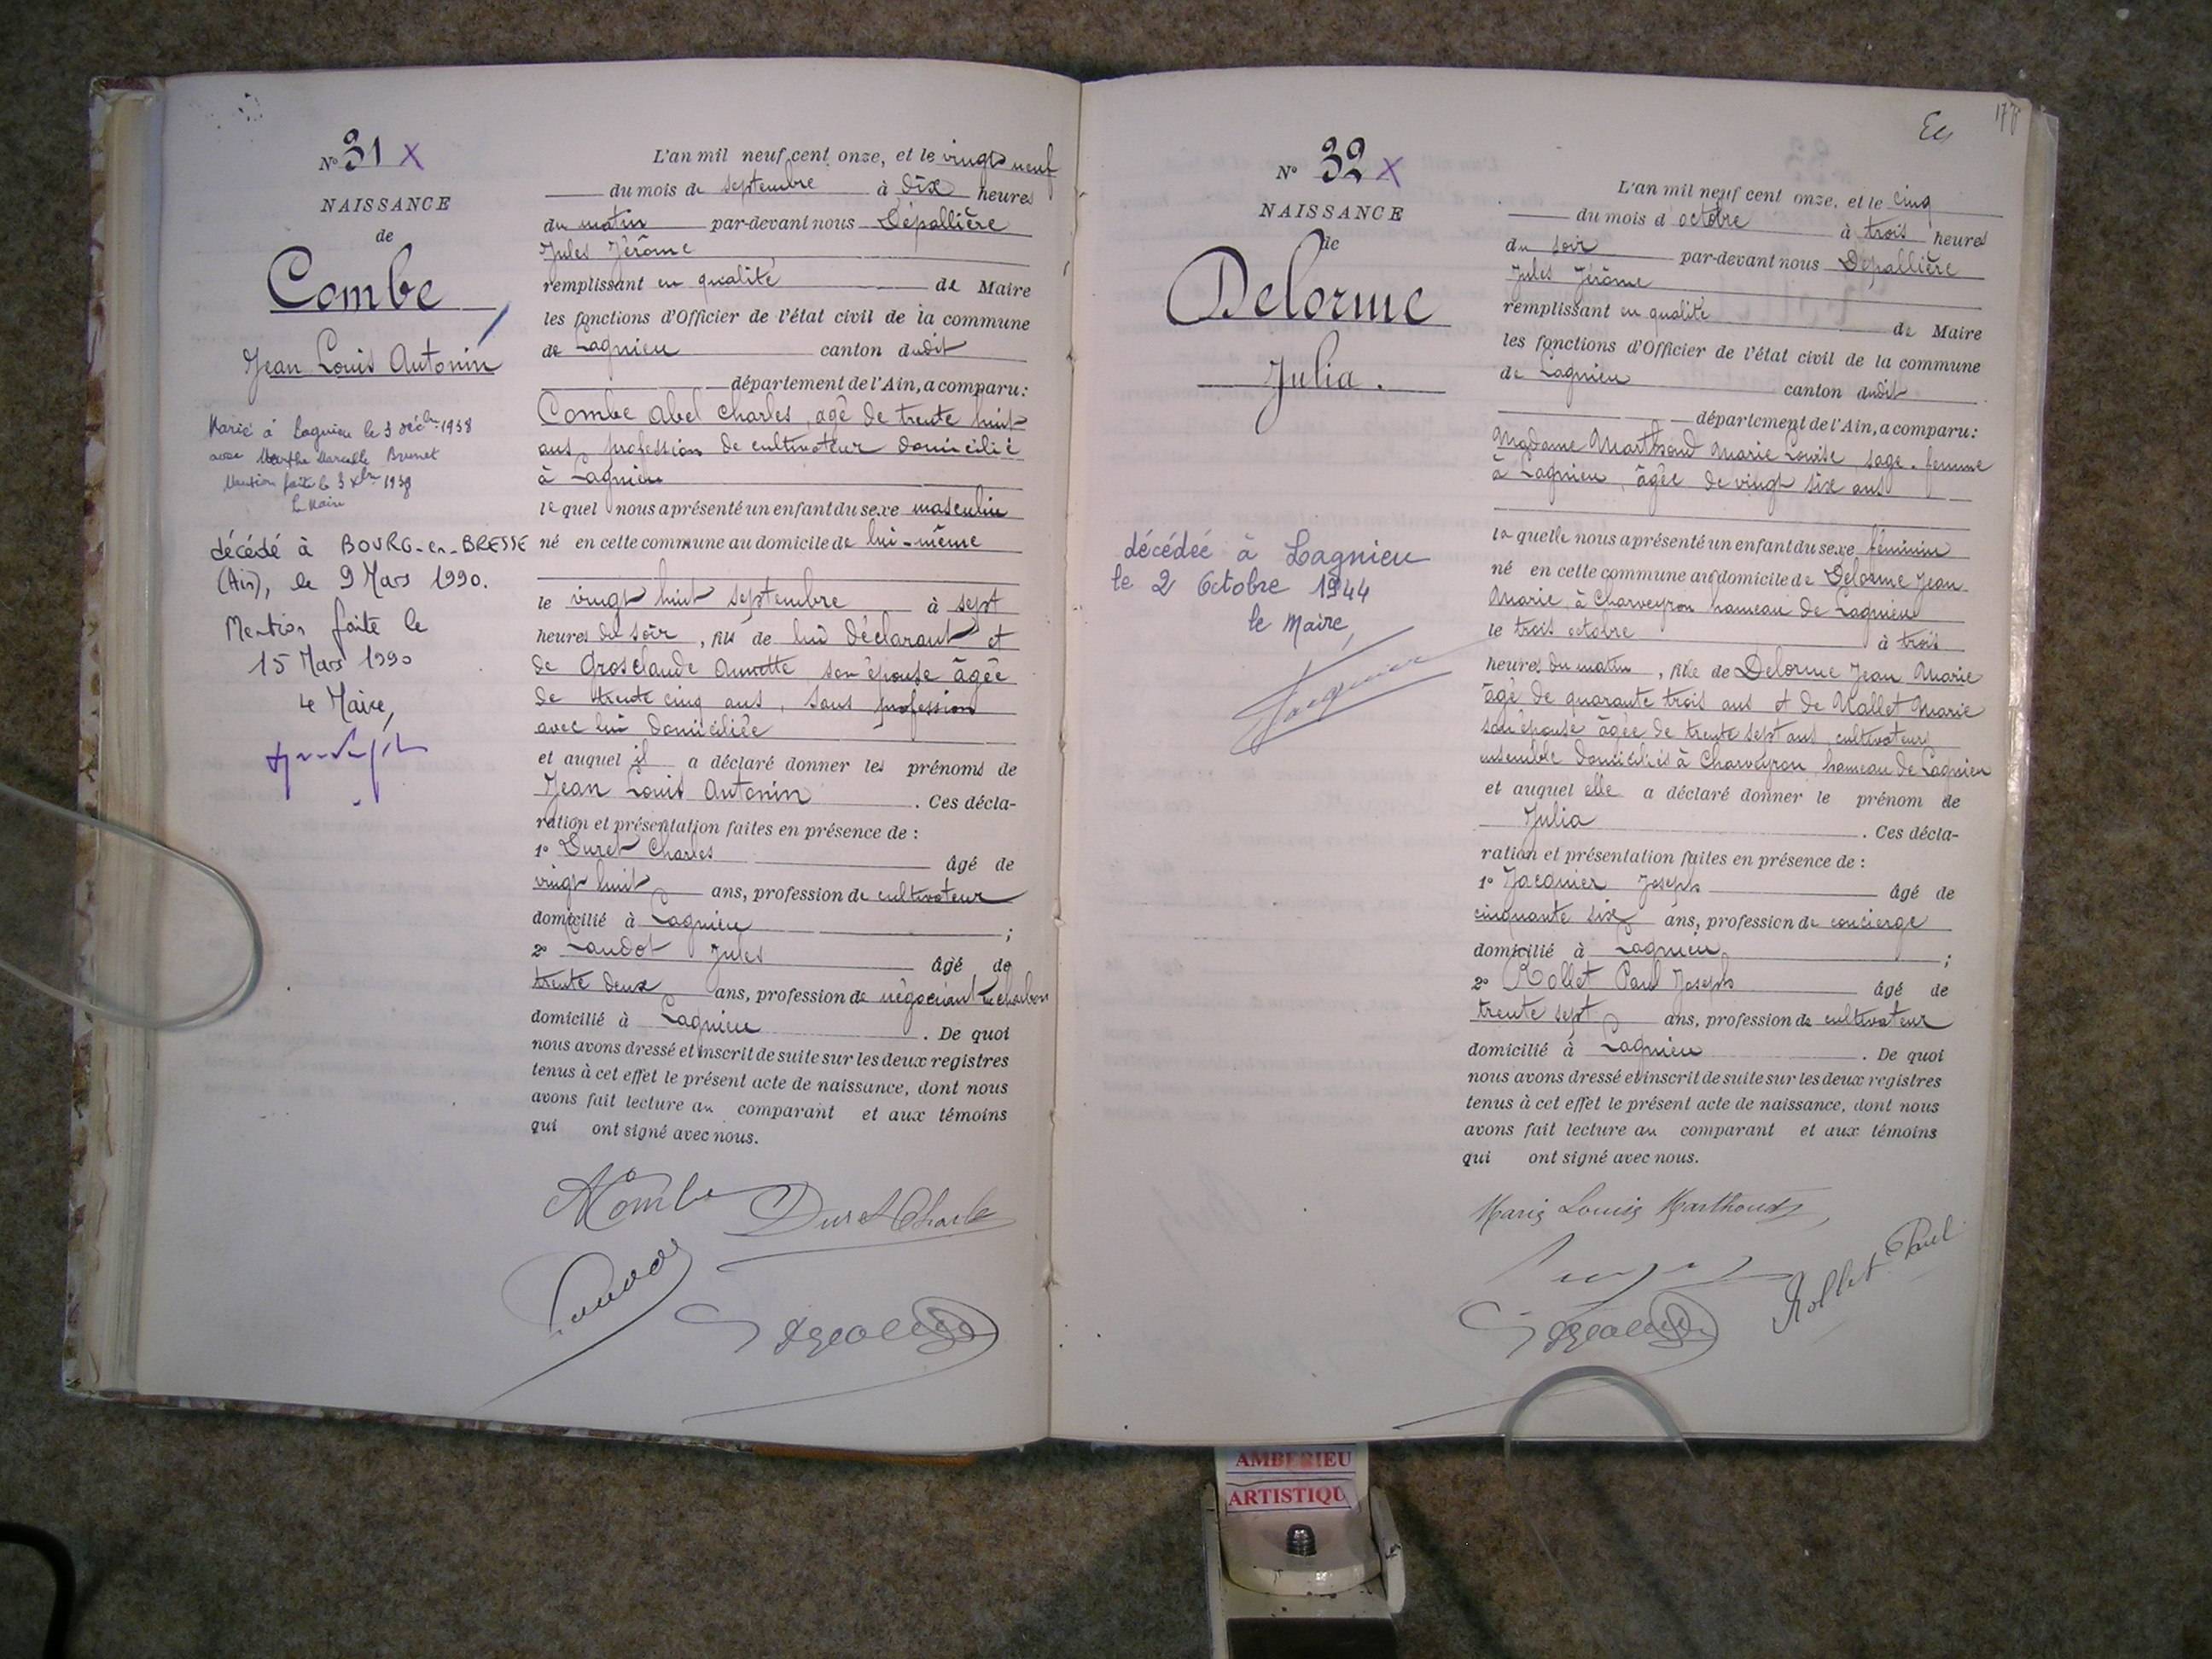 N° 31 X
NAISSANCE
de
Combe
Jean Louis Antonin
Marié à Lagnieu le 3 décbre 1938
avec Marthe Marcelle Brunet
Mention faite le 3 Xbre 1938
Le Maire
décédé à BOURG-en-BRESSE
(Ain), le 9 Mars 1990.
Mention faite le
15 Mars 1990
Le Maire,
L'an mil neuf cent onze, et le vingt neuf
du mois de septembre à dix heures
du matin par-devant nous Dépallière
Jules Jérôme
remplissant en qualité de Maire
les fonctions d'Officier de l'état civil de la commune
de Lagnieu canton dudit
département de l'Ain, a comparu :
Combe Abel Charles, âgé de trente huit
ans profession de cultivateur domicilié
à Lagnieu
lequel nous a présenté un enfant du sexe masculin
né en cette commune au domicile de lui-même
le vingt huit septembre à sept
heures du soir, fils de lui déclarant et
de Grosclaude Annette son épouse âgée
de trente cinq ans, sans profession
avec lui domiciliée
et auquel il a déclaré donner les prénoms de
Jean Louis Antonin. Ces décla-
ration et présentation faites en présence de :
1° Duret Charles âgé de
vingt huit ans, profession de cultivateur
domicilié à Lagnieu ;
2° Landot Jules âgé de
trente deux ans, profession de négociant en charbon
domicilié à Lagnieu. De quoi
nous avons dressé et inscrit de suite sur les deux registres
tenus à cet effet le présent acte de naissance, dont nous
avons fait lecture au comparant et aux témoins
qui ont signé avec nous.
ACombe Duret Charles
Landot
177
N° 32 X
NAISSANCE
de
Delorme
Julia.
décédée à Lagnieu
le 2 Octobre 1944
le Maire,
Jacquier
L'an mil neuf cent onze, et le cinq
du mois d'octobre à trois heures
du soir par-devant nous Dépallière
Jules Jérôme
remplissant en qualité de Maire
les fonctions d'Officier de l'état civil de la commune
de Lagnieu canton dudit
département de l'Ain, a comparu :
Madame Marthoud Marie Louise sage-femme
à Lagnieu, âgée de vingt six ans
laquelle nous a présenté un enfant du sexe féminin
né en cette commune au domicile de Delorme Jean
Marie, à Charveyron hameau de Lagnieu
le trois octobre à trois
heures du matin, fille de Delorme Jean Marie
âgé de quarante trois ans et de Mallet Marie
son épouse âgée de trente sept ans cultivateurs
ensemble domiciliés à Charveyron, hameau de Lagnieu
et auquel elle a déclaré donner le prénom de
Julia. Ces décla-
ration et présentation faites en présence de :
1° Jacquier Joseph âgé de
cinquante six ans, profession de concierge
domicilié à Lagnieu ;
2° Rollet Paul Joseph âgé de
trente sept ans, profession de cultivateur
domicilié à Lagnieu. De quoi
nous avons dressé et inscrit de suite sur les deux registres
tenus à cet effet le présent acte de naissance, dont nous
avons fait lecture au comparant et aux témoins
qui ont signé avec nous.
Marie Louise Marthoud
Rollet Paul
AMBERIEU
ARTISTIQU